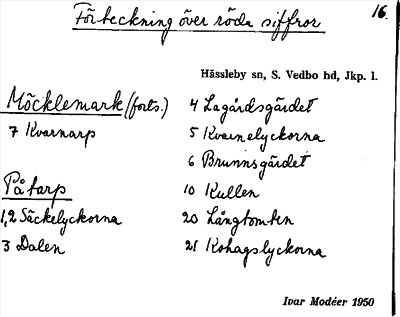 Förteckning över röda siffror
16.
Hässleby sn, S. Vedbo hd, Jkp. l.
Möcklemark (forts.)
7 Kvarnarp
Påtarp
1,2 Säckelyckorna
3 Dalen
4 Lagårdsgärdet
5 Kvarnelyckorna
6 Brunnsgärdet
10 Kullen
20 Långtomten
21 Kohagslyckorna
Ivar Modéer 1950